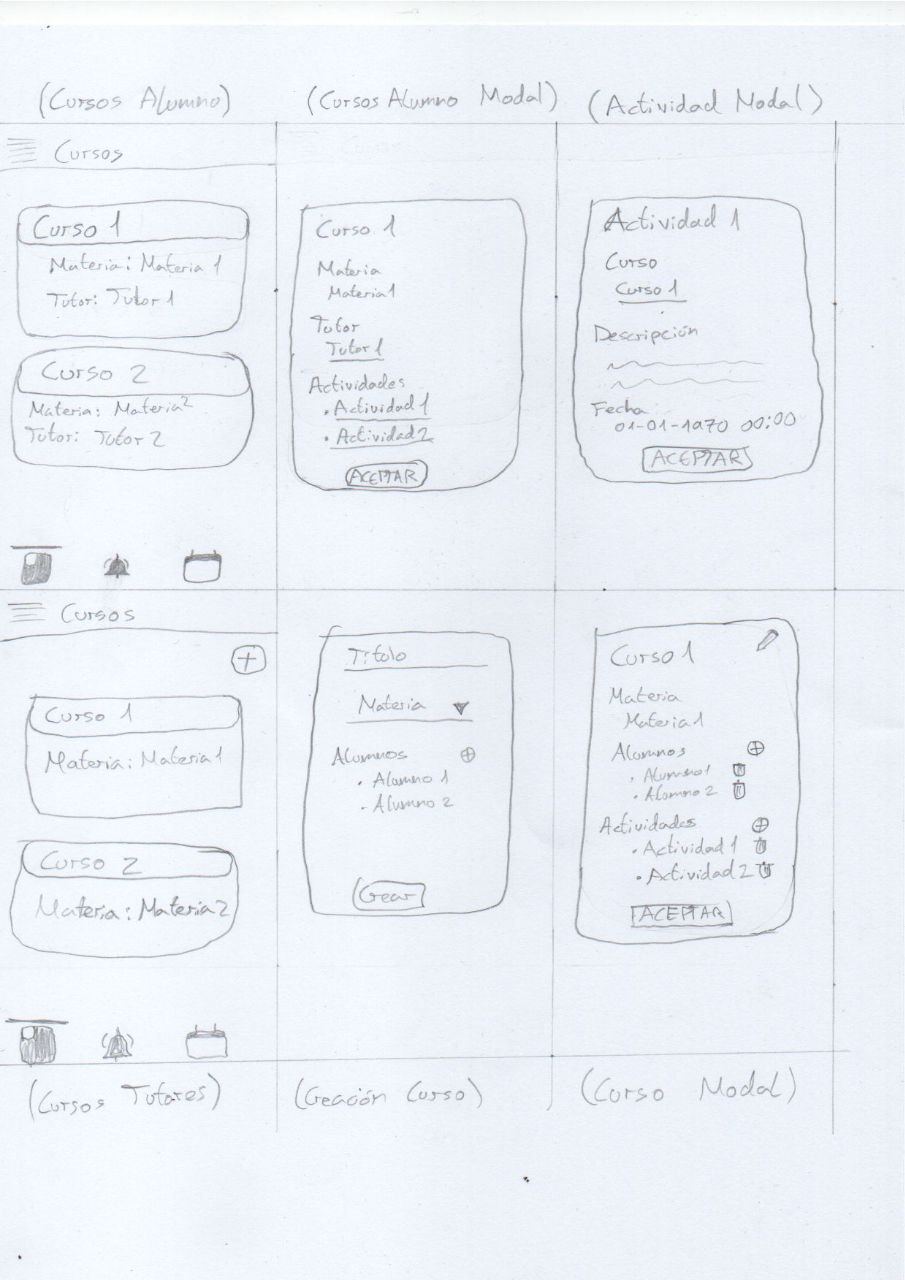 (Cursos Alumno)
(Cursos Alumno Modal)
(Actividad Modal)
Cursos
Curso 1
Materia: Materia 1
Tutor: Tutor 1
Curso 2
Materia: Materia 2
Tutor: Tutor 2
Curso 1
Materia
Materia 1
Tutor
Tutor 1
Actividades
• Actividad 1
• Actividad 2
ACEPTAR
Actividad 1
Curso
Curso 1
Descripción
Fecha
01-01-1970 00:00
ACEPTAR
Cursos
+
Curso 1
Materia: Materia 1
Curso 2
Materia: Materia 2
Título
Materia
Alumnos +
• Alumno 1
• Alumno 2
Crear
Curso 1
Materia
Materia 1
Alumnos +
• Alumno 1
• Alumno 2
Actividades +
• Actividad 1
• Actividad 2
ACEPTAR
(Cursos Tutores)
(Creación Curso)
(Curso Modal)